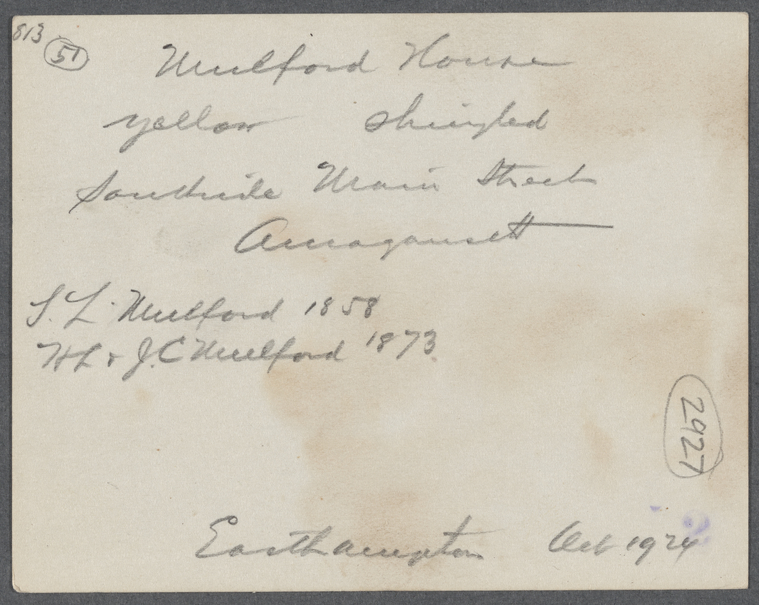 813
51
Mulford House
yellow shingled
Southside Main Street
Amagansett
S. L. Mulford 1858
H L & J. C Mulford 1873
2927
Easthampton Oct 1924